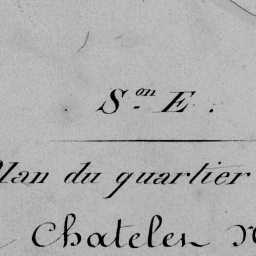 S.on E.
Plan du quartier
Chateler